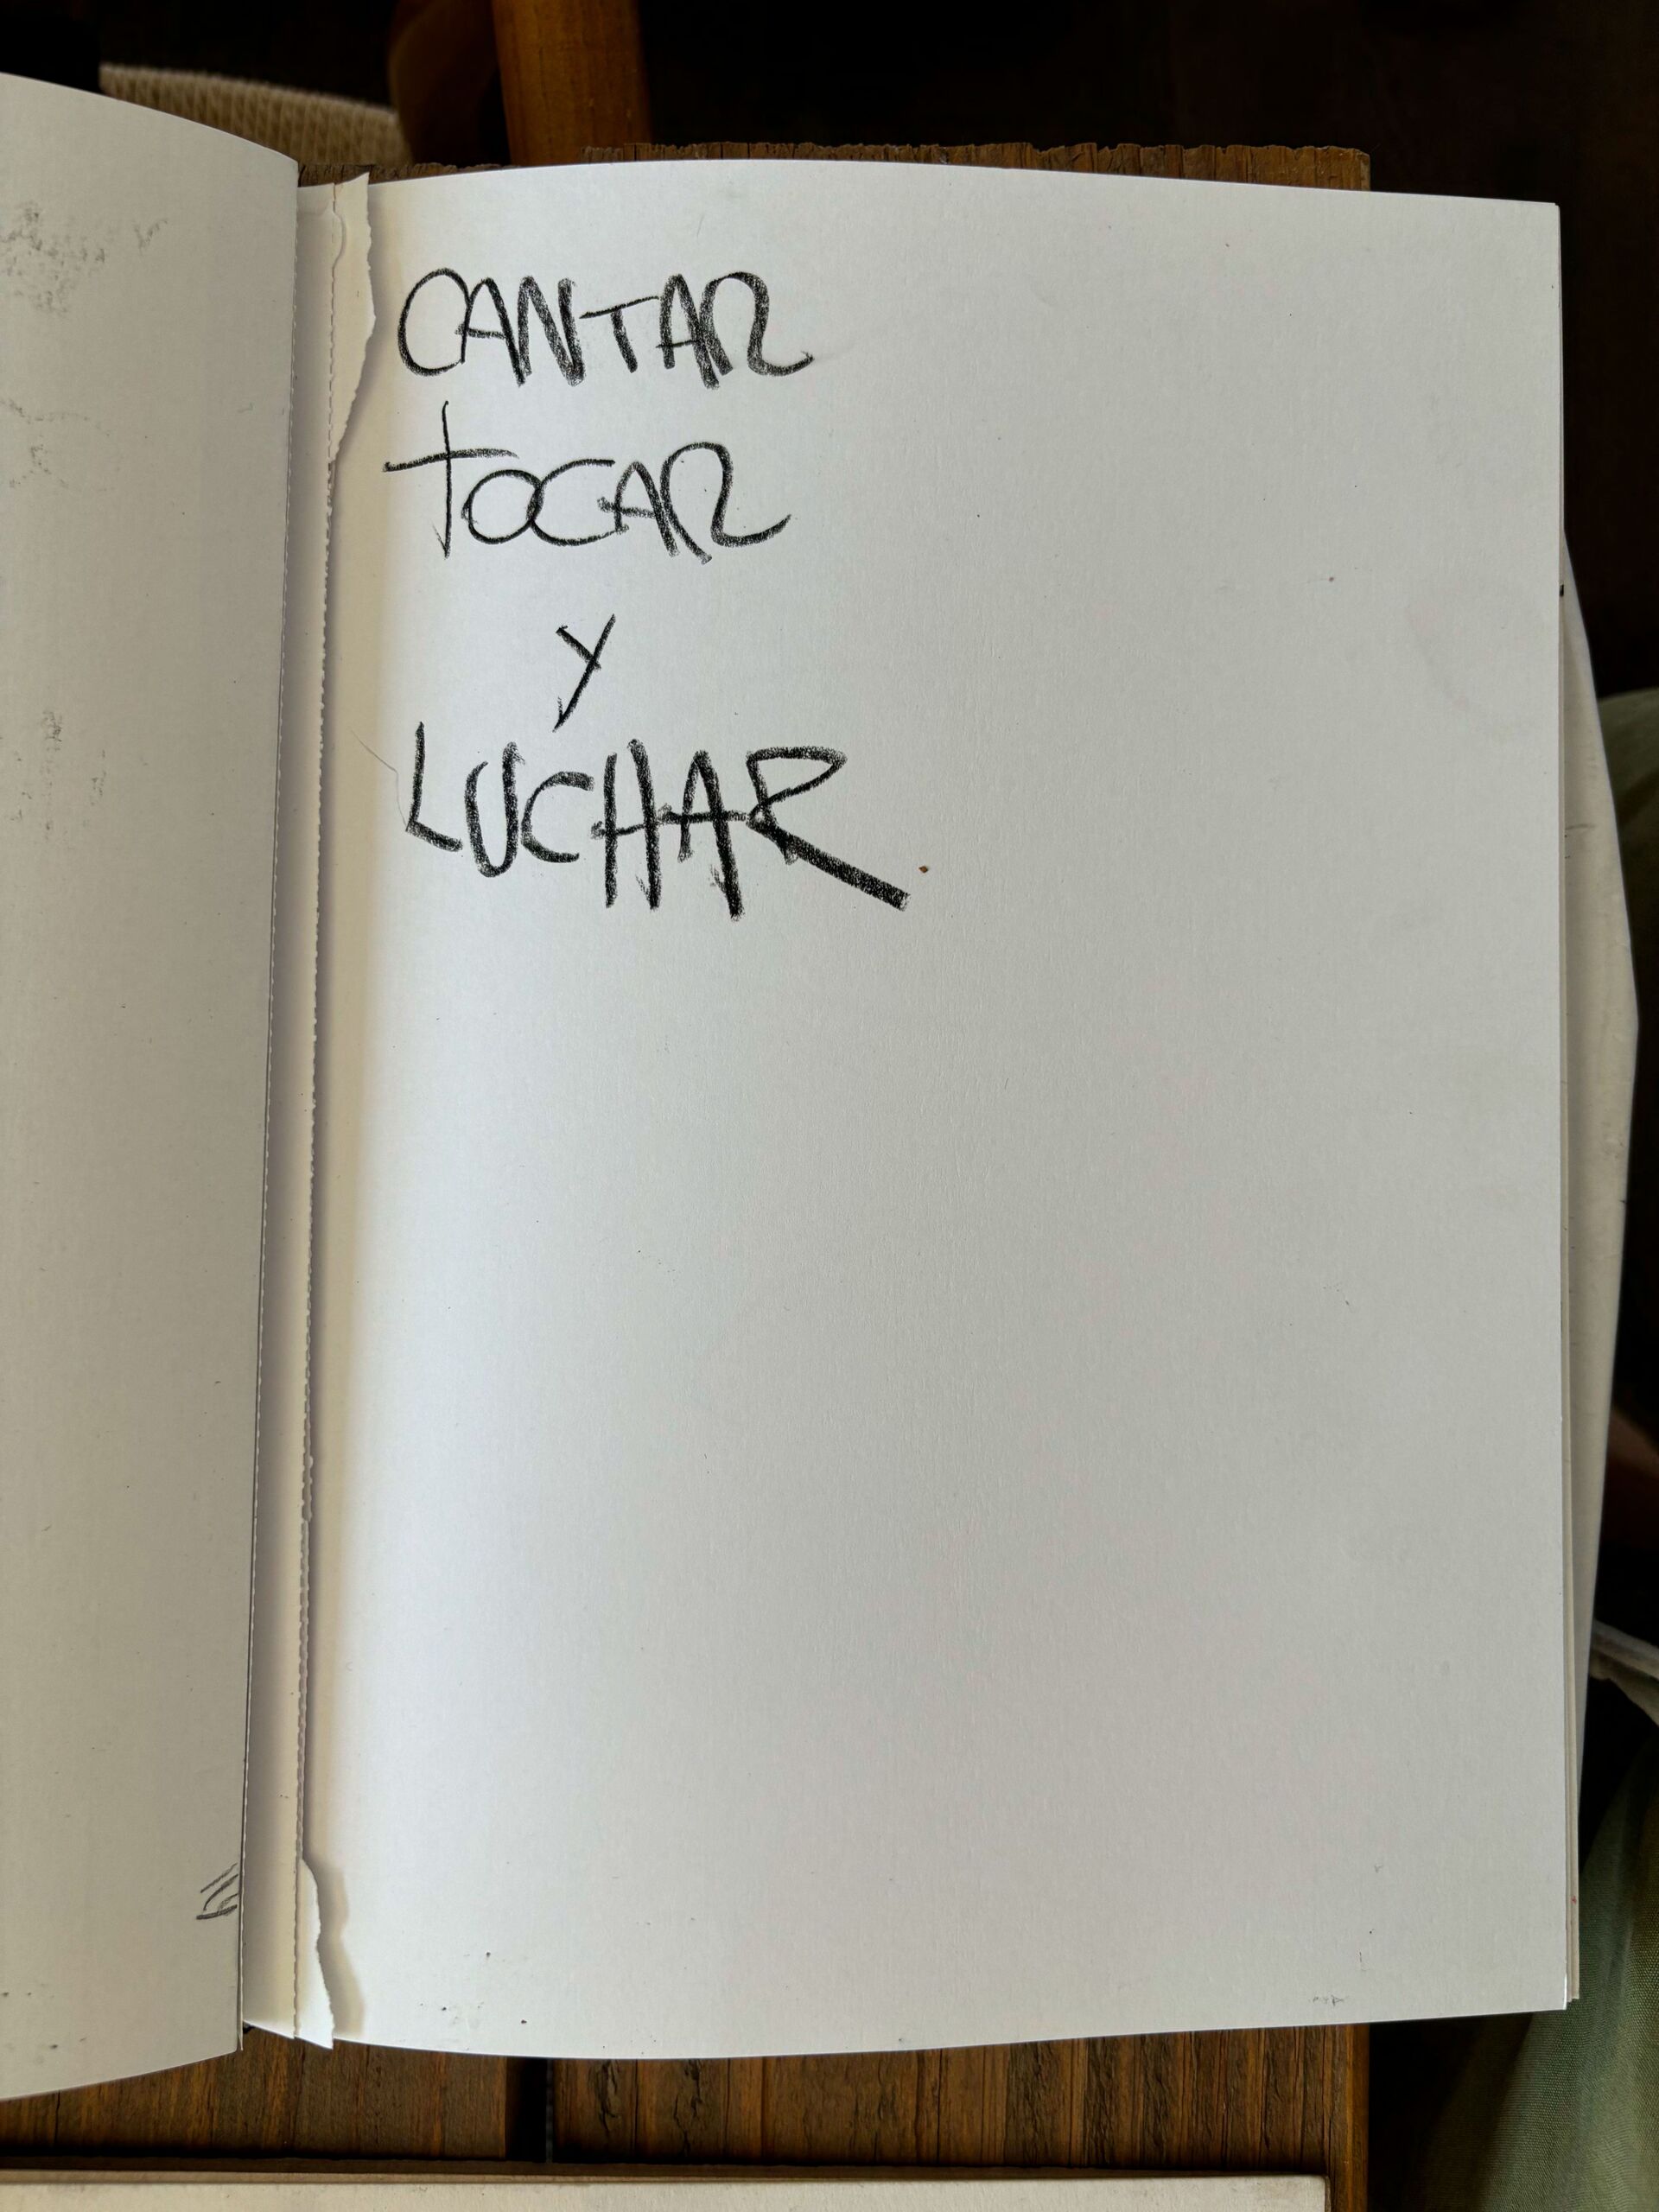 CANTAR
TOCAR
Y
LUCHAR